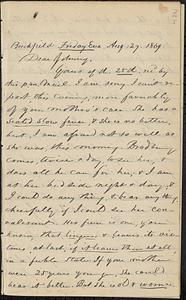 Buckfield. Friday Eve Aug. 27. 1869.
Dear Johnny,
Yours of the 25th. rec'd by
this pm mail. I am sorry I cannot re-
port, this evening, more favorably
of your mother's case. She has a
seated slow fever & she is no better,
but I am afraid not so well, as
she was, this morning. Bradbury
comes twice a day to see her, &
does all he can for her. I am
at her bedside night & day, & if
I could do any thing, & bear any thing
cheerfully if I could see her con-
valescent. Her fever is one, you
know that lingers & leaves its vic-
tims, at last, if it leaves them at all
in a feeble state. If your mother
were 25 years younger, she could
bear it better. But she is old & worn